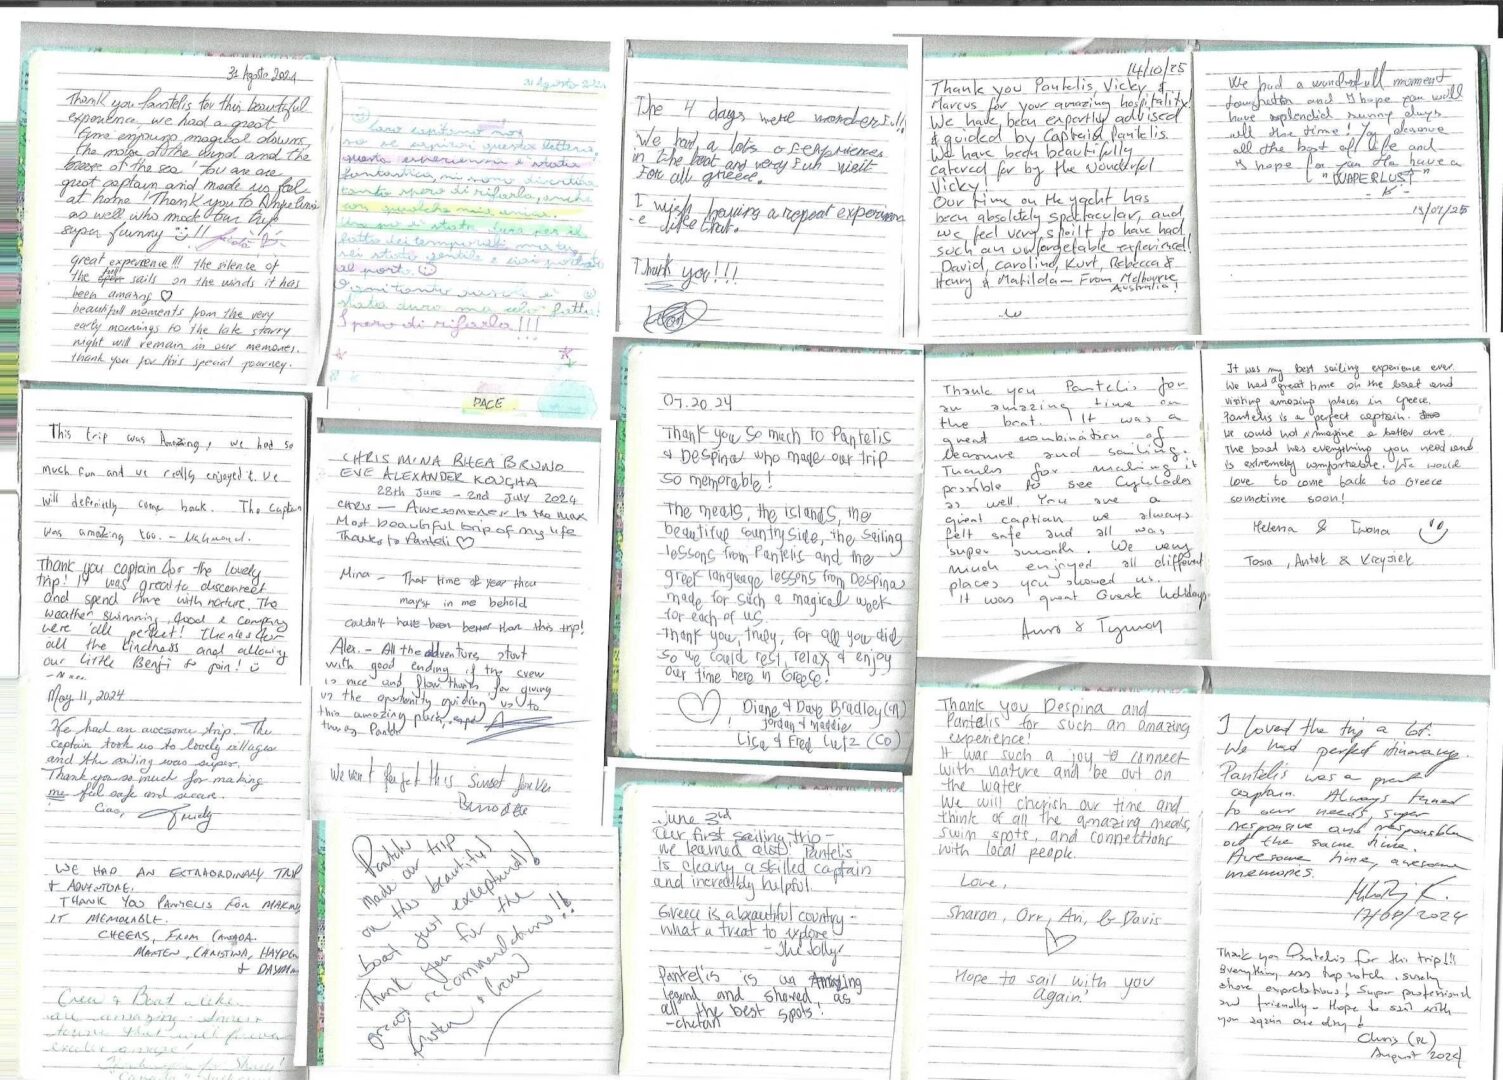 31 Agosto 2024
Thank you Pantelis for this beautiful
experience, we had a great
time enjoying magical dawns
the noise of the wind and the
breeze of the sea. You are
great captain and made us feel
at home! Thank you to
as well who made our trip
super funny !!!
great experience!!! the silence of
the full sails on the winds it has
been amazing ♡
beautifull moments from the very
early mornings to the late starry
night will remain in our memories.
thank you for this special journey.
questa lettera,
questa esperienza è stata
fantastica, mi sono divertita
tanto spero di rifarla, anche
con qualche mia amica.
al porto.
Spero di rifarla!!!
PACE
The 4 days were wonderful!!
We had a lots of experiences
in the boat and very fun visit
for all greece.
I wish having a repeat experience
like that.
Thank you!!!
14/10/25
Thank you Pantelis, Vicky &
Marcus for your amazing hospitality!
We have been expertly advised
& guided by Captain Pantelis.
We have been beautifully
catered for by the wonderful
Vicky!
Our time on the yacht has
been absolutely spectacular, and
we feel very spoilt to have had
such an unforgetable experience!
David, Caroline, Kurt, Rebecca &
Henry & Matilda - From Melbourne
Australia!
We had a wonderfull moment
and I hope you will
have splendid sunny days
all the time! You deserve
all the best of life and
I hope for you to have a
"WAPERLUST"
This trip was Amazing, we had so
much fun and we really enjoyed it. We
will definitely come back. The Captain
was amazing too.
Thank you captain for the lovely
trip! It was great to disconnect
and spend time with nature. The
weather, swimming, food & company
were all perfect! Thanks for
all the kindness and allowing
our little Benji to join!
May 11, 2024
We had an awesome trip. The
captain took us to lovely villages
and the sailing was super.
Thank you so much for making
me feel safe and secure.
Ciao,
WE HAD AN EXTRAORDINARY TRIP
& ADVENTURE.
THANK YOU PANTELIS FOR MAKING
IT MEMORABLE.
CHEERS, FROM CANADA.
MARTEN, CHRISTINA, HAYDEN
Crew & Boat
are amazing.
CHRIS MINA RHEA BRUNO
EVE ALEXANDER KOUGHA
28th June - 2nd July 2024
CHRIS - Awesomeness to the max
Most beautiful trip of my life
Thanks to Panteli ♡
Mina - That time of year thou
mayst in me behold
couldn't have been better than this trip!
Alex. - All the adventure start
with good ending if the crew
is nice and
us the oportunity guiding us to
this amazing places,
We won't forget this Sunset forever
Pantelis
made our trip
on this beautiful
boat just exceptional!
Thank you for the
great recommendations!!
07.20.24
Thank you so much to Pantelis
& Despina who made our trip
so memorable!
The meals, the islands, the
beautiful countryside, the sailing
lessons from Pantelis and the
greek language lessons from Despina
made for such a magical week
for each of us.
Thank you, truly, for all you did
so we could rest, relax & enjoy
our time here in Greece!
Diane & Dave Bradley
Jordan & Maddie
Lisa & Fred Lutz (CO)
June 3rd
Our first sailing trip -
we learned alot! Pantelis
is clearly a skilled captain
and incredibly helpful.
Greece is a beautiful country -
what a treat to explore
- The Jollys
Pantelis is an Amazing
legend and showed us
all the best spots!
- chetan
Thank you Pantelis for
an amazing time on
the boat. It was a
great combination of
leasure and sailing.
Thanks for making it
possible to see Cyclades
as well. You are a
great captian we always
felt safe and all was
super smooth. We very
much enjoyed all different
places you showed us.
It was great Greek holidays
It was my best sailing experience ever.
We had a great time on the boat and
visiting amazing places in Greece.
Pantelis is a perfect captain.
We could not imagine a better one.
The boat has everything you need and
is extremely comfortable. We would
love to come back to Greece
sometime soon!
Helena & Iwona
Tosia, Antek & Krzysiek
Thank you Despina and
Pantelis for such an amazing
experience!
It was such a joy to connect
with nature and be out on
the water
We will cherish our time and
think of all the amazing meals,
swim spots, and connections
with local people.
Love,
Sharon, Orr, Ari, & Davis
Hope to sail with you
again!
I loved the trip a lot.
We had perfect itinerary.
Pantelis was a great
captain. Always tuned
to our needs, super
responsive and responsible
at the same time.
Awesome time, awesome
memories.
17/08/2024
Thank you Pantelis for this trip!!!
Everything was top notch, surely
above expectations! Super professional
and friendly. Hope to sail with
you again one day!
Chris (PL)
August 2024